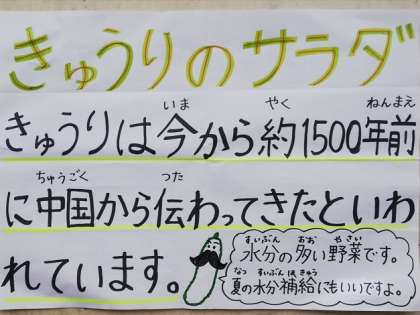 きゅうりのサラダ
いま やく ねんまえ
きゅうりは今から約1500年前
ちゅうごく つた
に中国から伝わってきたといわ
れています。
すいぶん おお やさい
水分の多い野菜です。
なつ すいぶんほきゅう
夏の水分補給にもいいですよ。